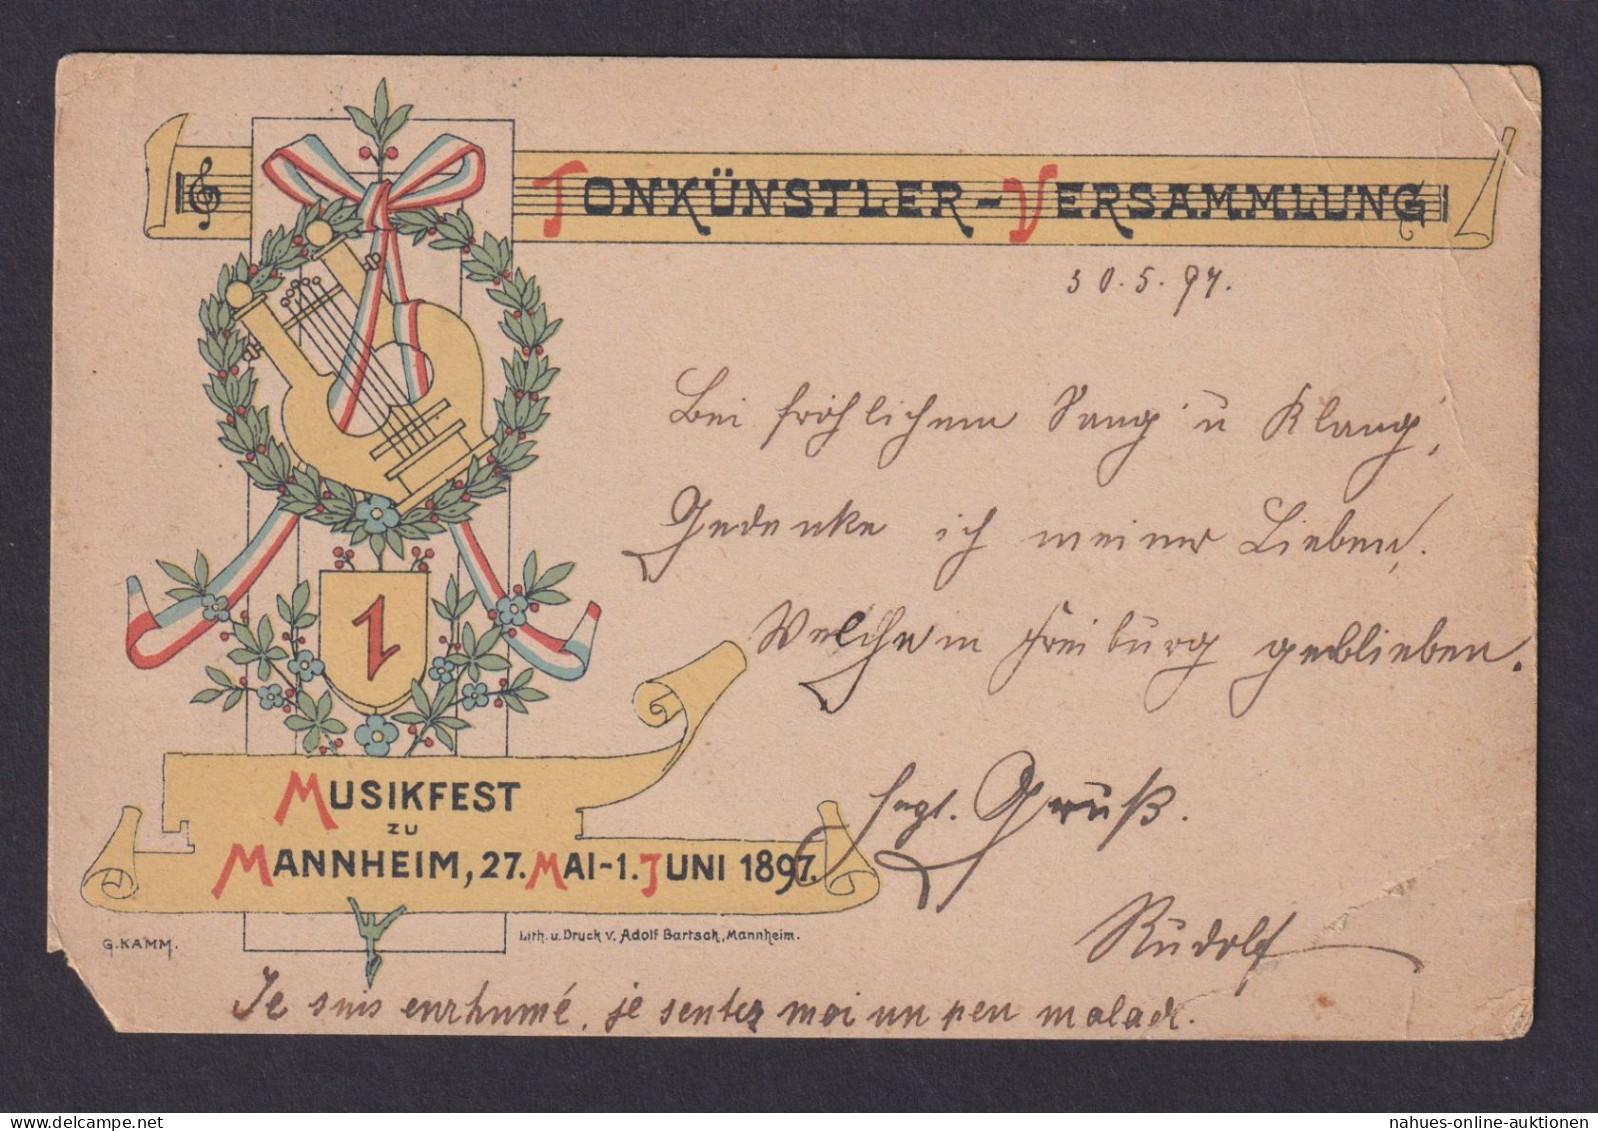 TONKÜNSTLER-VERSAMMLUNG
30.5.97.
Bei fröhlichem Sang u Klang,
Gedenke ich meiner Lieben,
Welche in Freiburg geblieben.
Gruß.
Rudolf
1
MUSIKFEST
ZU
MANNHEIM, 27. MAI-1. JUNI 1897.
G. KAMM.
Lith. u. Druck v. Adolf Bartsch, Mannheim.
Je suis enrhumé, je sentez moi un peu malade.
nahues-online-auktionen